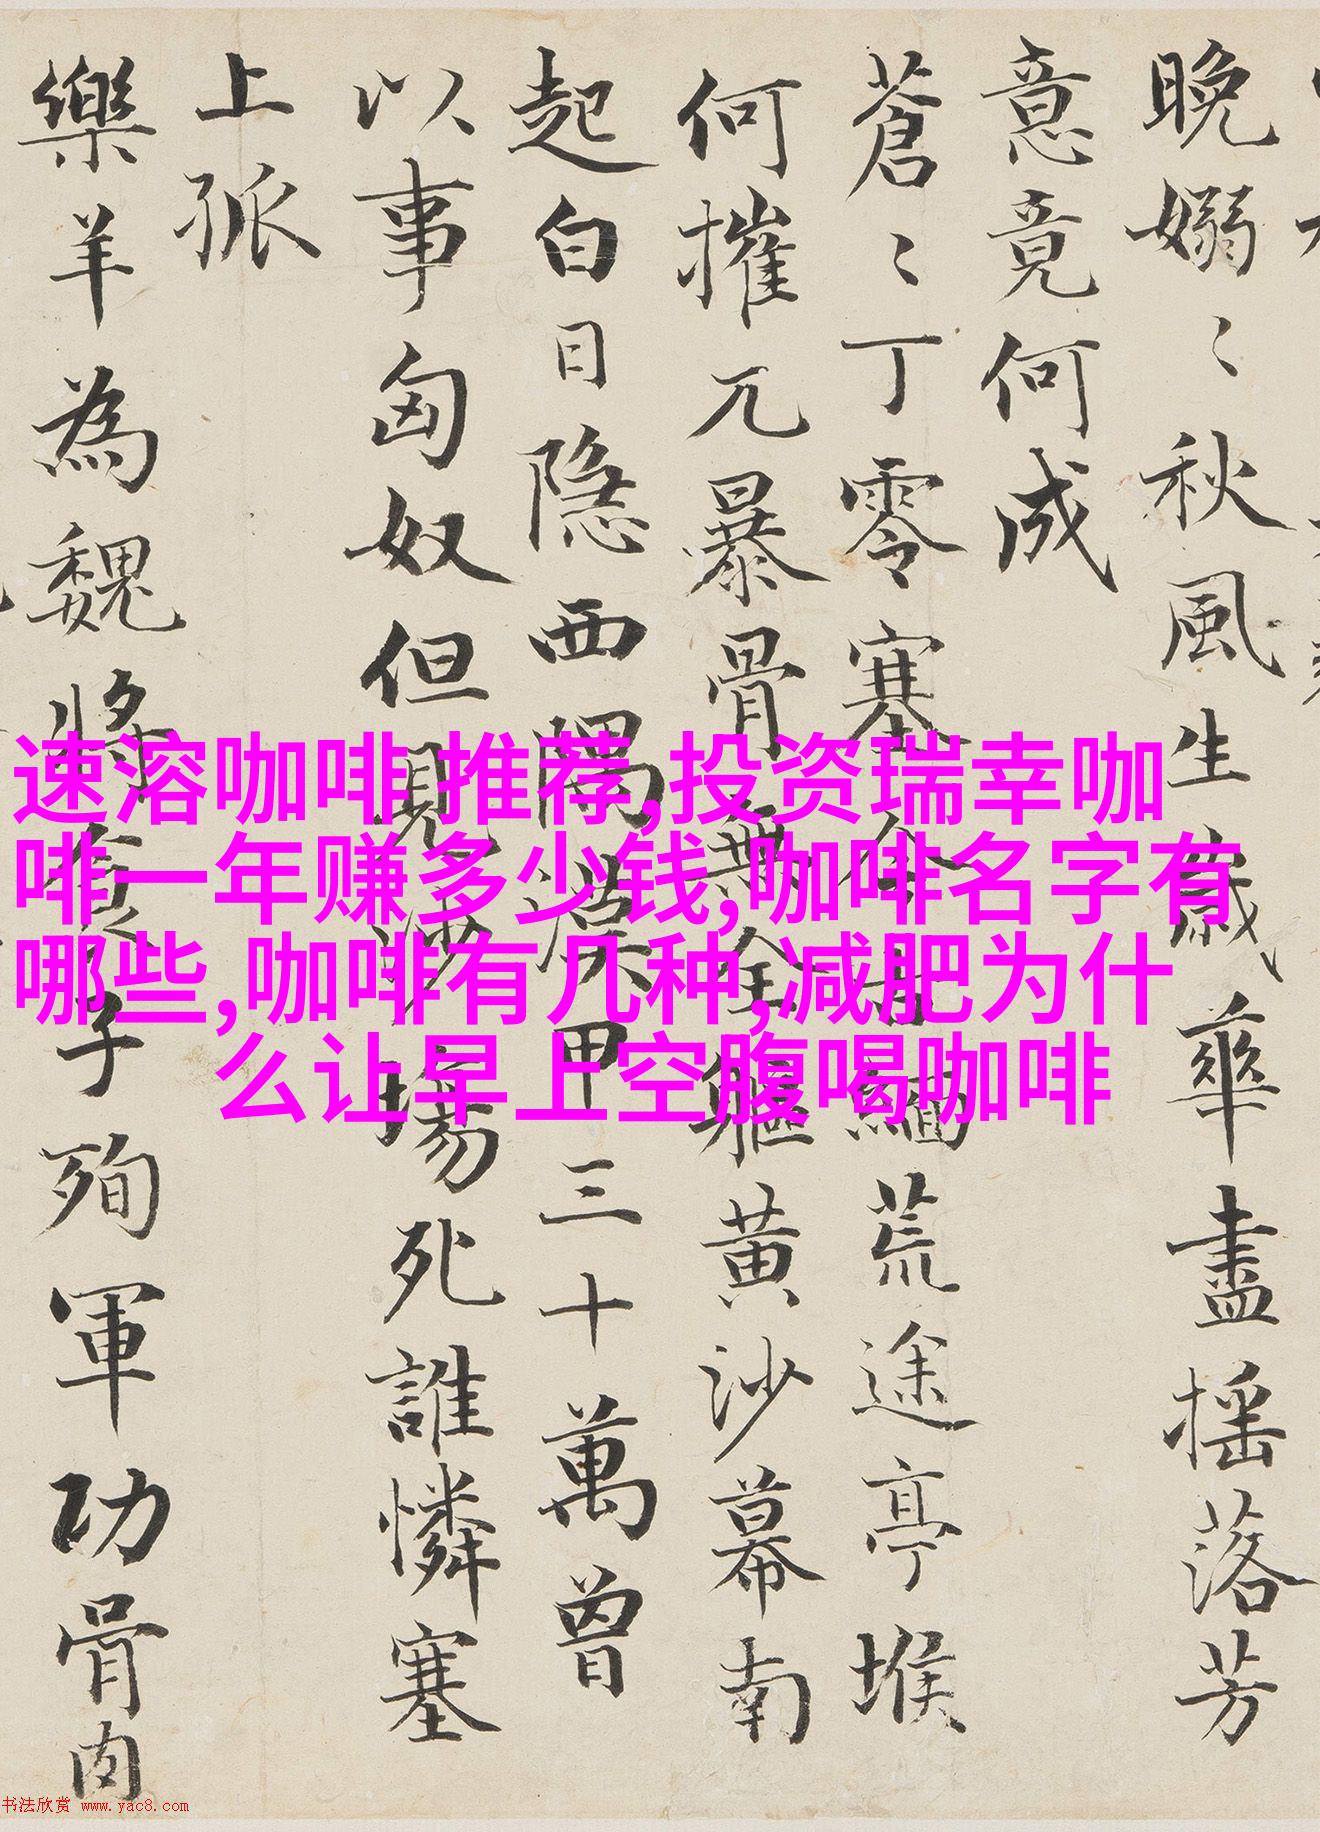 晚嫋〻秋風生歲華盡揺落芳
意竟何成
蒼〻丁零塞今古緬荒途亭堠
何摧兀暴骨無全軀黄沙幕南
起白日隐西隅漢甲三十萬曾
以事匈奴但見沙場死誰憐塞
上孤
樂羊為魏將食子殉軍功骨肉
速溶咖啡 推荐,投资瑞幸咖
啡一年赚多少钱,咖啡名字有
哪些,咖啡有几种,减肥为什
么让早上空腹喝咖啡
书法欣赏 www.yac8.com